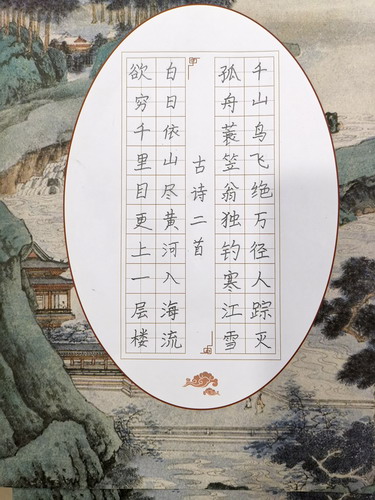 千山鸟飞绝万径人踪灭
孤舟蓑笠翁独钓寒江雪
古诗二首
白日依山尽黄河入海流
欲穷千里目更上一层楼